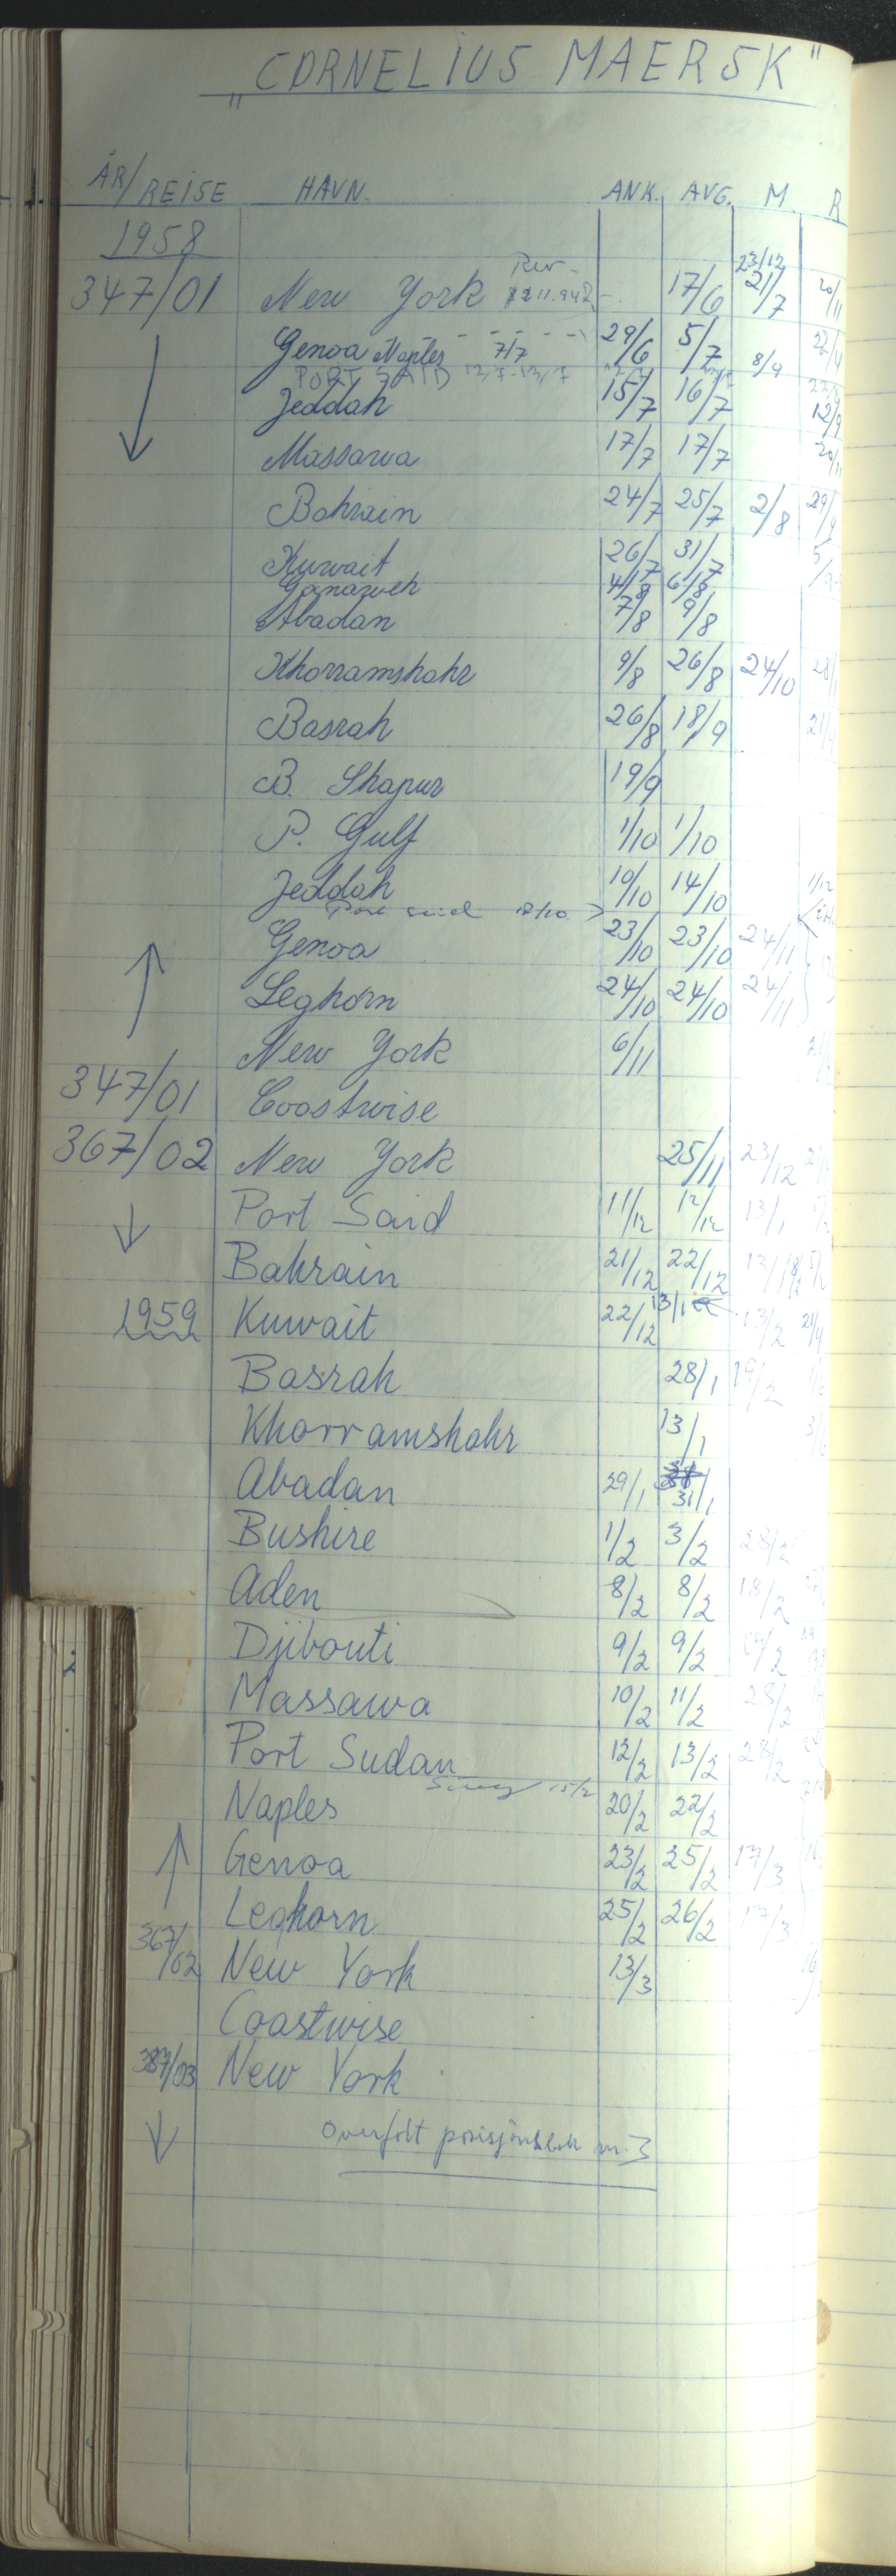 "CORNELIUS MAERSK"
ÅR/REISE HAVN. ANK. AVG. M. R
1958 23/12
347/01 New York 17/6 21/7 20/11
Genoa Naples 7/7 29/6 5/7 8/9
PORT SAID 12/7-13/7
Jeddah 15/7 16/7 12/9
Massawa 17/7 17/7 20/11
Bahrain 24/7 25/7 2/8 29/9
Kuwait 26/7 31/7
Ganaweh 4/8 6/8
Abadan 7/8 9/8
Khorramshahr 9/8 26/8 24/10
Basrah 26/8 18/9
B. Shapur 19/9
P. Gulf 1/10 1/10
Jeddah 10/10 14/10 1/12
Port said
Genoa 23/10 23/10 24/11
Leghorn 24/10 24/10 24/11
New York 6/11
347/01 Coastwise
367/02 New York 25/11 23/12
Port Said 11/12 12/12 13/1
Bahrain 21/12 22/12
1959 Kuwait 22/12 13/1 13/2
Basrah 28/1 19/2
Khorramshahr 13/1
Abadan 29/1 31/1
Bushire 1/2 3/2 28/2
Aden 8/2 8/2 18/2
Djibouti 9/2 9/2
Massawa 10/2 11/2 28/2
Port Sudan 12/2 13/2 28/2
Suez 15/2
Naples 20/2 22/2
Genoa 23/2 25/2 17/3
Leghorn 25/2 26/2 17/3
367/02 New York 13/3
Coastwise
387/03 New York
Overført posisjonsbok nr. 3